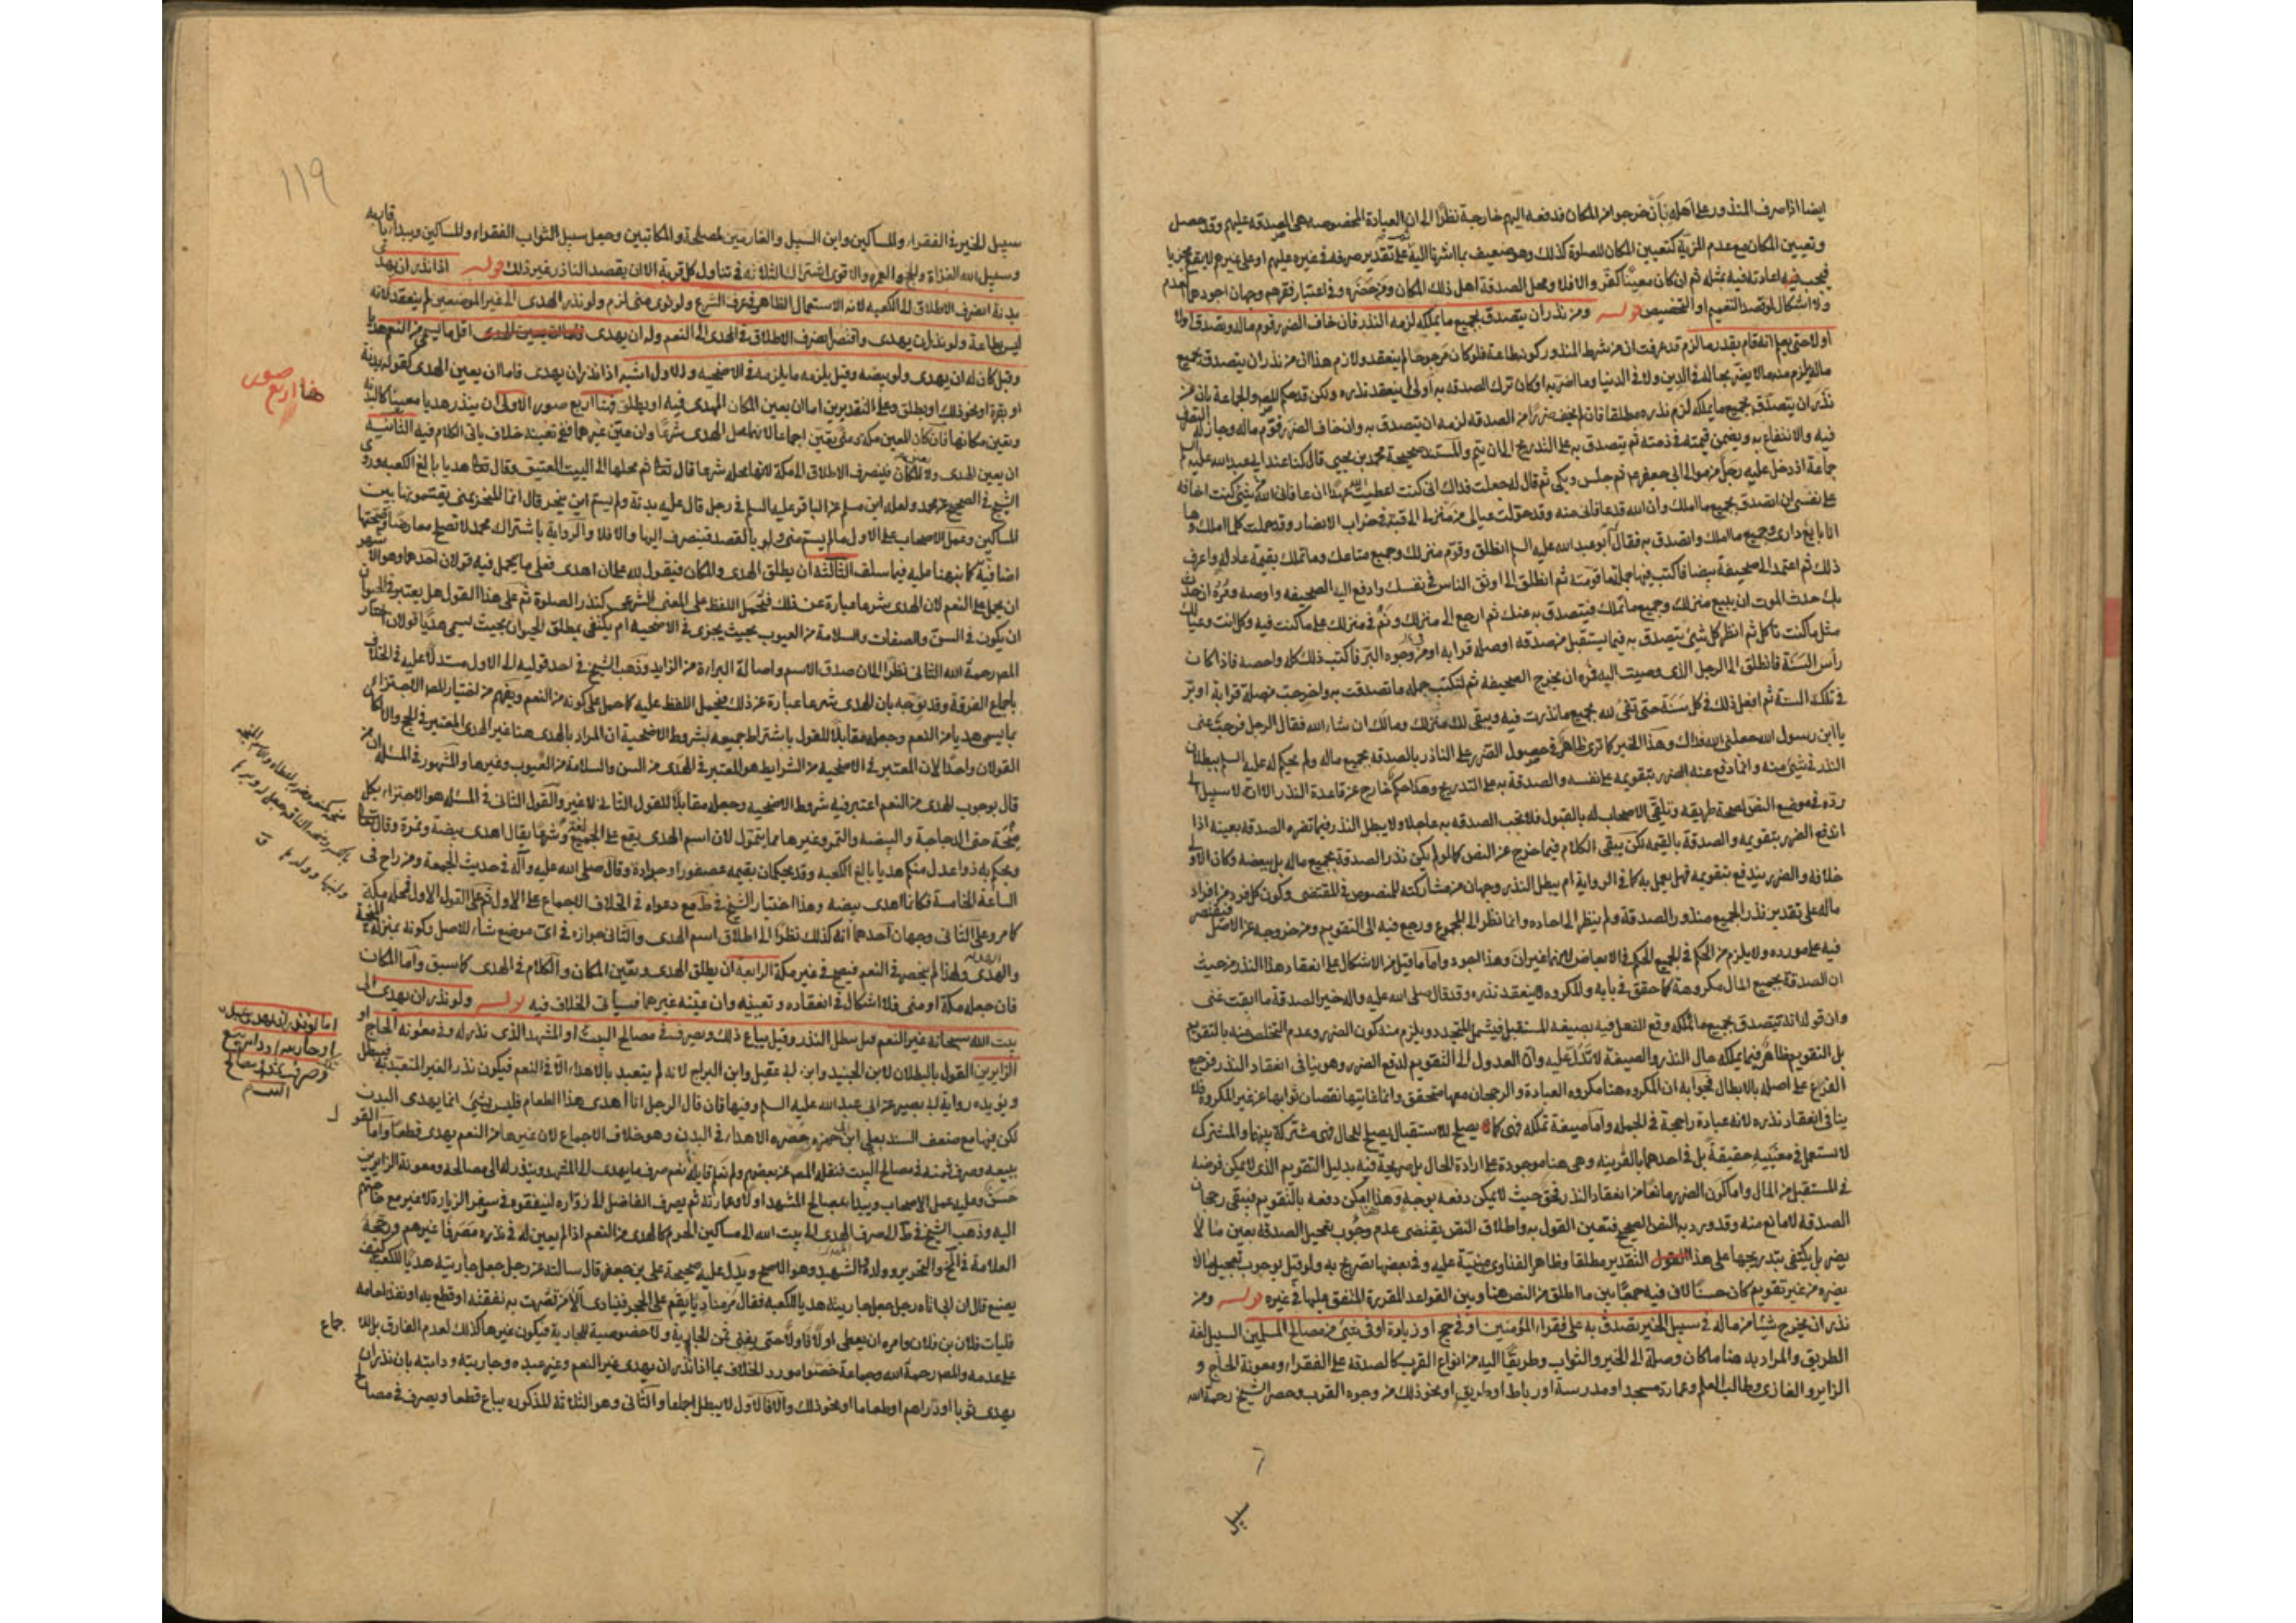 ايضا اذا صرف المنذور على اهله بان خرجوا من المكان فدفعه اليهم خارجه نظرا الى ان العبادة المخصوصه هى الصدقه عليهم وقد حصل
وتعيين المكان مع عدم المزية كتعيين المكان للصلوة كذلك وهو ضعيف بما اشرنا اليه على تقدير صرفه فى غيره عليهم او على غيرهم لا يقع مجزيا
فيجب فيه اعادته فيه بمثله ثم ان كان معينا كفر والا فلا ومحل الصدقة اهل ذلك المكان ومن حضره وفى اعتبار فقرهم وجهان اجودهما العدم
ولا اشكال لو قصد التعميم او التخصيص قوله ومن نذر ان يتصدق بجميع ما يملكه لزمه النذر فان خاف الضرر قوم ماله وتصدق اولا
اولا حتى يعلم انه قام بقدر ما لزم قد عرفت ان من شرط المنذور كونه طاعة فلو كان مرجوحا لم ينعقد ولازم هذا ان من نذر ان يتصدق بجميع
ماله يلزم منه ما لا يضر بحاله فى الدين ولا فى الدنيا وما اضر به او كان ترك الصدقه به اولى لم ينعقد نذره ولكن قد حكم المصر والجماعة بان من
نذر ان يتصدق بجميع ما يملكه لزم نذره مطلقا فان لم يخف ضررا من الصدقه لزمه ان يتصدق به وان خاف الضرر قوم ماله وجاز له التصرف
فيه والانتفاع به ويضمن قيمته فى ذمته ثم يتصدق به على التدريج الى ان يتم والمستند صحيحة محمد بن يحيى قال كنا عند ابى عبدالله عليه السلم
جماعة اذ دخل عليه رجل من موالى ابى جعفر ثم جلس وبكى ثم قال له جعلت فداك انى كنت اعطيت الله عهدا ان عافانى الله من شئ كنت اخافه
على نفسى ان اتصدق بجميع ما املك وان الله قد عافانى منه وقد حولت عيالى من منزلى الى قبة فى خراب الانصار وقد حملت كل ما املك وها
انا بايع دارى وجميع ما املك واتصدق به فقال ابو عبد الله عليه السلم انطلق وقوم منزلك وجميع متاعك وما تملك بقيمة عادله واعرف
ذلك ثم اعتمد الى صحيفة بيضا فاكتب فيها جملة ما قومته ثم انطلق الى اوثق الناس فى نفسك وادفع اليه الصحيفه واوصه ومره ان حدث
بك حدث الموت ان يبيع منزلك وجميع ما تملك فيتصدق به عنك ثم ارجع الى منزلك وقم فى منزلك على ما كنت فيه وكل انت وعيالك
مثل ما كنت تاكل ثم انظر كل شئ يتصدق به فيما يستقبل من صدقه او صلة قرابه او من وجوه البر فاكتب ذلك كله واحصه فاذا كان
رأس السنة فانطلق الى الرجل الذى وصيت اليه فمره ان يخرج الصحيفه ثم لتكتب جمله ما تصدقت به واخرجت من صلة قرابة او بر
فى تلك السنة ثم افعل ذلك فى كل سنة حتى تفى لله بجميع ما نذرت فيه ويبقى لك منزلك ومالك ان شاء الله فقال الرجل فرجت عنى
يا ابن رسول الله جعلنى الله فداك وهذا الخبر كما ترى ظاهر فى حصول الضرر على الناذر بالصدقه بجميع ماله ولم يحكم له عليه السلم ببطلان
النذر فى شئ منه وانما دفع عنه الضرر بتقويمه على نفسه والصدقة به على التدريج وهذا حكم خارج عن قاعدة النذر الا ان لا سبيل الى
رده فى موضع النص لصحة طريقه وتلقى الاصحاب له بالقبول فلا تجب الصدقه به عاجلا ولا يبطل النذر فيما تضره الصدقه بعينه اذا
اندفع الضرر بتقويمه والصدقة بالقيمه لكن يبقى الكلام فيما خرج عن النص كما لو لم يكن نذر الصدقة بجميع ماله بل ببعضه وكان الاولى
خلافه والضرر يندفع بتقويمه فهل يعمل به كما فى الرواية ام يبطل النذر وجهان من مشاركته للمنصوص فى المقتضى وكون كل فرد من افراد
ماله على تقدير نذر الجميع منذور الصدقة ولم ينظر الى احاده وانما نظر الى المجموع ورجع فيه الى التقويم ومن خروجه عن الاصل فيقتصر
فيه على مورده ولا يلزم من الحكم فى الجميع الحكم فى الابعاض لانهما غيران وهذا اجود واما ما قيل من الاشكال على انعقاد هذا النذر من حيث
ان الصدقة بجميع المال مكروهة كما حقق فى بابه والمكروه لا ينعقد نذره وقد قال صلى الله عليه واله خير الصدقة ما ابقت غنى
وان قوله انه يتصدق بجميع ما يملكه وقع الفعل فيه بصيغه المستقبل فيشمل المتجدد ويلزم منه كون الضرر وعدم التخلص منه بالتقويم
بل التقويم ظاهر فيما يملكه حال النذر والصيغة لا تدل عليه وان العدول الى التقويم لدفع الضرر وهو ينافى انعقاد النذر فرجع
الفرع على اصله بالابطال فجوابه ان المكروه هنا مكروه العبادة والرجحان معها متحقق وانما غايتها نقصان ثوابها عن غير المكروه فلا
ينافى انعقاد نذره لانه عبادة راجحة فى الجمله واما صيغة تملكه فهى كما يصلح للاستقبال يصلح للحال فهى مشتركة بينهما والمشترك
لا يستعمل فى معنييه حقيقة بل فى احدهما بالقرينه وهى هنا موجودة على ارادة الحال بل صريحة فيه بدليل التقويم الذى لا يمكن فرضه
فى المستقبل من المال واما كون الضرر مانعا من انعقاد النذر فحق حيث لا يمكن دفعه بوجه وهذا يمكن دفعه بالتقويم فيبقى رجحان
الصدقة لا مانع منه وقد ورد به النص الصحيح فتعين القول به واطلاق النص يقتضى عدم وجوب تعجيل الصدقة بعين ما لا
يضر بل يكتفى بتدريجها على هذا التقدير مطلقا وظاهر الفتاوى مبنية عليه وفى بعضها تصريح به ولو قيل بوجوب تعجيل ما لا
يضره من غير تقويم كان حسنا لان فيه جمعا بين ما اطلق من النص هنا وبين القواعد المقررة المتفق عليها فى غيره قوله ومن
نذر ان يخرج شيئا من ماله فى سبيل الخير تصدق به على فقراء المؤمنين او فى حج او زيارة او فى شئ من مصالح المسلمين السبيل لغة
الطريق والمراد به هنا ما كان وصلة الى الخير والثواب وطريقا اليه من انواع القرب كالصدقه على الفقراء ومعونة الحاج و
الزاير والغازى وطالب العلم وعمارة مسجد او مدرسة او رباط او طريق او نحو ذلك من وجوه القرب وحصر الشيخ رحمة الله
سبيل
119
سبيل الخير فى الفقراء والمساكين وابن السبيل والغارمين لمصلحة والمكاتبين وجعل سبيل الثواب الفقراء والمساكين ويبدأ باقاربه
وسبيل الله الغزاة والحج والعمره والاقوى اشتراك الثلاثه فى تناول كل قربة الا ان يقصد الناذر غير ذلك قوله اذا نذر ان يهدى
بدنة انصرف الاطلاق الى الكعبه لانه الاستعمال الظاهر فى عرف الشرع ولو نوى منى لزم ولو نذر الهدى الى غير الموضعين لم ينعقد لانه
ليس بطاعة ولو نذر ان يهدى واقتصر انصرف الاطلاق فى الهدى الى النعم وله ان يهدى اقل ما يسمى من النعم هديا
وقيل كان له ان يهدى ولو بيضه وقيل يلزمه ما يلزمه فى الاضحيه والاول اشبه اذا نذر ان يهدى فاما ان يعين الهدى كقوله بدنة
او بقرة او نحو ذلك او يطلق وعلى التقديرين اما ان يعين المكان المهدى فيه او يطلق فهنا اربع صور الاولى ان ينذر هديا معينا كالبدنه
ويعين مكانها فان كان المعين مكة او منى تعين اجماعا لانهما محل الهدى شرعا وان عين غيرهما ففى تعينه خلاف ياتى الكلام فيه الثانية
ان يعين الهدى ولا يعين المكان فينصرف الاطلاق الى مكة لانها محله شرعا قال تعالى ثم محلها الى البيت العتيق وقال تعالى هديا بالغ الكعبه وروى
الشيخ فى الصحيح عن محمد ولعله ابن مسلم عن الباقر عليه السلم فى رجل قال عليه بدنة ولم يسم اين ينحر قال انما المنحر بمنى يقتسمونها بين
المساكين وعمل الاصحاب على الاول ما لم يسم منى ولو بالقصد فينصرف اليها والا فلا والرواية باشتراك محمد لا تصلح معارضا وصحتها
اضافية كما نبهنا عليه فيما سلف الثالثه ان يطلق الهدى والمكان فيقول لله على ان اهدى فعلى ما يحمل فيه قولان احدهما وهو الاشهر
ان يحمل على النعم لان الهدى شرعا عبارة عن ذلك فيحمل اللفظ على المعنى الشرعى كنذر الصلوة ثم على هذا القول هل يعتبر فى الحيوان
ان يكون فى السن والصفات والسلامة من العيوب بحيث يجزى فى الاضحيه ام يكتفى بمطلق الحيوان بحيث يسمى هديا قولان اختار
المصر رحمة الله الثانى نظرا الى ان صدق الاسم واصالة البراءة من الزايد وذهب الشيخ فى احد قوليه الى الاول مستدلا عليه فى الخلاف
باجماع الفرقة وقد يوجه بان الهدى شرعا عبارة عن ذلك فيحمل اللفظ عليه كما حمل على كونه من النعم ويفهم من اختيار المصر الاجتزاء
بما يسمى هديا من النعم وجعله مقابلا للقول باشتراط جميعه بشروط الاضحية ان المراد بالهدى هنا غير الهدى المعتبر فى الحج والا لكان
القولان واحدا لان المعتبر فى الاضحيه من الشرايط هو المعتبر فى الهدى من السن والسلامة من العيوب وغيرها والمشهور فى المسئلة ان من
قال بوجوب الهدى من النعم اعتبر فيه شروط الاضحيه وجعله مقابلا للقول الثانى لا غير والقول الثانى فى المسئله هو الاجتزاء بكل
منحة حتى الدجاجة والبيضه والتمر وغيرها مما يتمول لان اسم الهدى يقع على الجميع لغة وشرعا يقال اهدى بيضة وتمرة وقال تعالى
ويحكم به ذوا عدل منكم هديا بالغ الكعبه وقد يحكمان بقيمه عصفور او جرادة وقال صلى الله عليه وآله فى حديث الجمعة ومن راح فى
الساعة الخامسة فكانما اهدى بيضه وهذا اختيار الشيخ فى ط مع دعواه فى الخلاف الاجماع على الاول ثم على القول الاول محله مكة
كما مر وعلى الثانى وجهان احدهما انه كذلك نظرا الى اطلاق اسم الهدى والثانى جوازه فى اى موضع شاء للاصل وكونه بمنزلة المنحة
والهدية ولهذا لم ينحصر فى النعم فيصح فى غير مكة الرابعة ان يطلق الهدى ويعين المكان والكلام فى الهدى كما سبق واما المكان
فان جعله مكة او منى فلا اشكال فى انعقاده وتعيينه وان عينه غيرهما فسيأتى الخلاف فيه قوله ولو نذر ان يهدى الى
بيت الله سبحانه غير النعم قيل يبطل النذر وقيل يباع ذلك ويصرف فى مصالح البيت او المشهد الذى نذر له وفى معونه الحاج او
الزايرين القول بالبطلان لابن الجنيد وابن ابى عقيل وابن البراج لانه لم يتعبد بالاهداء الا فى النعم فيكون نذر الغير المتعبد به فيبطل
ويؤيده رواية ابى بصير عن ابى عبد الله عليه السلم وفيها فان قال الرجل انا اهدى هذا الطعام فليس بشئ انما يهدى البدن
لكن فيها مع ضعف السند بعلى ابن ابى حمزه حصره الاهداء فى البدن وهو خلاف الاجماع لان غيرها من النعم يهدى قطعا واما القول
ببيعه وصرف ثمنه فى مصالح البيت فنقله المصر عن بعضهم ولم نعلم قايله نعم صرف ما يهدى الى المشهد وينذر له الى مصالحه ومعونة الزايرين
حسن وعليه عمل الاصحاب ويبدأ بمصالح المشهد اولا وعمارته ثم يصرف الفاضل الى زواره لينفقوه فى سفر الزيارة لا غير مع حاجتهم
اليه وذهب الشيخ فى ط الى صرف الهدى الى بيت الله الى مساكين الحرم كالهدى من النعم اذا لم يعين له فى نذره مصرفا غيرهم ورجحه
العلامة فى المخ والتحرير وولده والشهيد وهو الاصح ويدل عليه صحيحة على بن جعفر قال سالته عن رجل جعل جاريته هديا للكعبه كيف
يصنع قال ان ابى اتاه رجل جعل جاريته هديا للكعبه فقال مر مناديا يقم على الحجر فينادى الا من قصرت به نفقته او قطع به او نفد طعامه
فليات فلان بن فلان وامره ان يعطى اولا فاولا حتى يفنى ثمن الجارية ولا خصوصية للجارية فيكون غيرها كذلك لعدم الفارق بل الاجماع
على عدمه والمصر رحمة الله وجماعة خصوا مورد الخلاف بما اذا نذر ان يهدى غير النعم وغير عبده وجاريته ودابته بان نذر ان
يهدى ثوبا او دراهم او طعاما او نحو ذلك والا فالاول لا يبطل اجماعا والثانى وهو الثلاثة المذكوره يباع قطعا ويصرف فى مصالح
هنا اربع صور
اما لو نذر ان يهدى عبده
او جاريته او دابته بيع
ذلك وصرف ثمنه فى مصالح
البيت